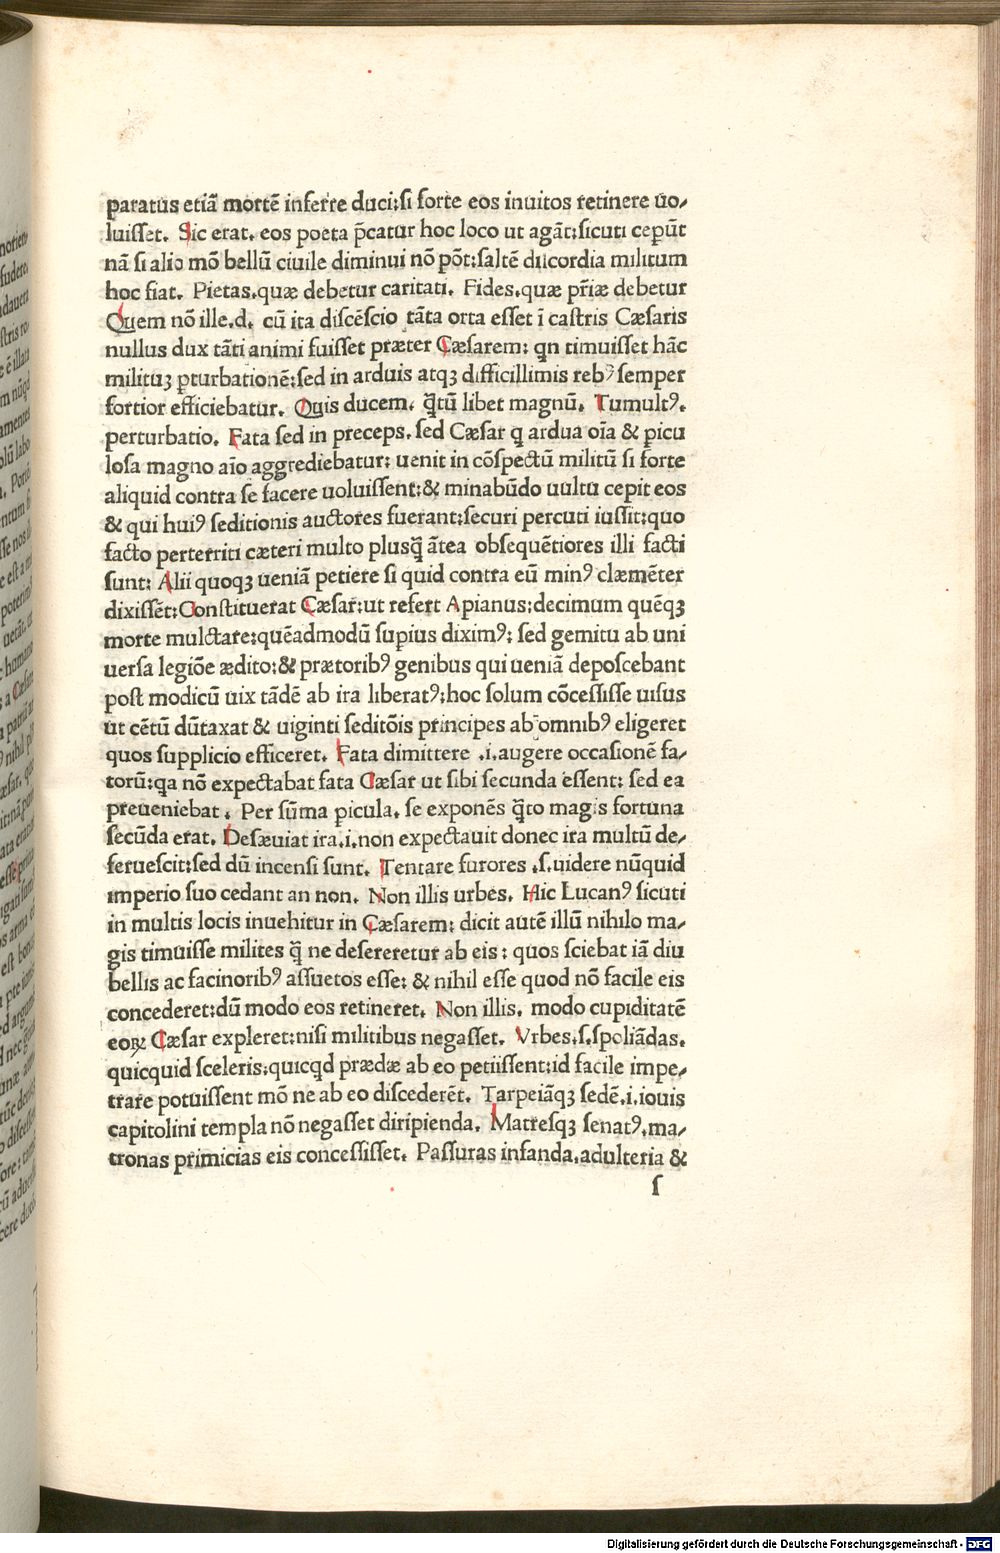 paratus etiā mortē inferre duci:si forte eos inuitos retinere uo/
luiſſet. Sic erat. eos poeta p̄catur hoc loco ut agāt:sicuti cepūt
nā si alio mō bellū ciuile diminui nō pōt:saltē diicordia militum
hoc fiat. Pietas.quæ debetur caritati. Fides.quæ pr̄iæ debetur
Quem nō ille.d. cū ita discēscio tāta orta esset ī castris Cæsaris
nullus dux tāti animi fuisset præter Cæsarem: qn timuisset hāc
milituꝫ pturbationē:sed in arduis atqꝫ difficillimis rebꝰ semper
fortior efficiebatur. Quis ducem. q̄tū libet magnū. Tumultꝰ.
perturbatio. Fata sed in preceps. sed Cæsar q ardua oīa & picu
losa magno aīo aggrediebatur: uenit in cōspectū militū si forte
aliquid contra se facere uoluissent:& minabūdo uultu cepit eos
& qui huiꝰ seditionis auctores fuerant:securi percuti iussit:quo
facto perterriti cæteri multo plusq̄ ātea obsequētiores illi facti
sunt: Alii quoqꝫ ueniā petiere si quid contra eū minꝰ clæmēter
dixissēt:Constituerat Cæsar:ut refert Apianus:decimum quēqꝫ
morte mulctare:quēadmodū supius diximꝰ: sed gemitu ab uni
uersa legiōe ædito:& prætoribꝰ genibus qui ueniā deposcebant
post modicū uix tādē ab ira liberatꝰ:hoc solum cōcessisse uisus
ut cētū dūtaxat & uiginti seditōis principes ab omnibꝰ eligeret
quos supplicio efficeret. Fata dimittere .i.augere occasionē fa/
torū:qa nō expectabat fata Cæsar ut sibi secunda essent: sed ea
preueniebat . Per sūma picula. se exponēs q̄to magis fortuna
secūda erat. Desæuiat ira.i.non expectauit donec ira multū de/
feruescit:sed dū incensi sunt. Tentare furores .s.uidere nūquid
imperio suo cedant an non. Non illis urbes. Hic Lucanꝰ sicuti
in multis locis inuehitur in Cæsarem: dicit autē illū nihilo ma/
gis timuisse milites q̄ ne desereretur ab eis : quos sciebat iā diu
bellis ac facinoribꝰ assuetos esse: & nihil esse quod nō facile eis
concederet:dū modo eos retineret. Non illis. modo cupiditatē
eoꝝ Cæsar expleret:nisi militibus negasset. Vrbes.s.spoliādas.
quicquid sceleris:quicqd prædæ ab eo petiissent:id facile impe/
trare potuissent mō ne ab eo discederēt. Tarpeiāqꝫ sedē.i.iouis
capitolini templa nō negasset diripienda. Matresqꝫ senatꝰ.ma/
tronas primicias eis concessisset. Passuras infanda.adulteria &
ſ
Digitalisierung gefördert durch die Deutsche Forschungsgemeinschaft - DFG